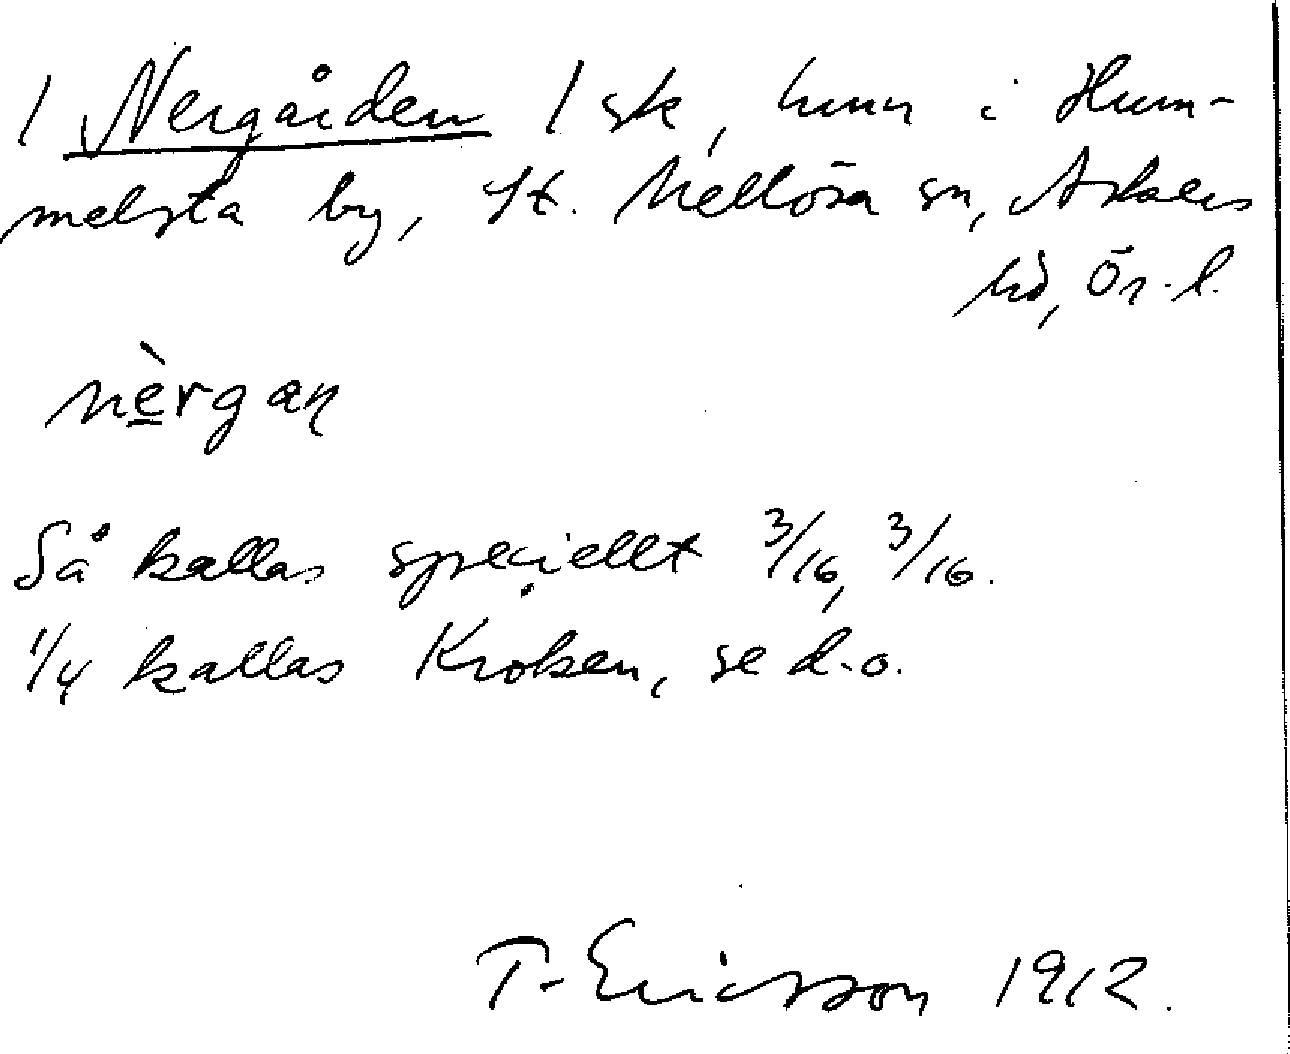 / Nergården / sk, hmn i Hum-
melsta by, St. Mellösa sn, Askers
hd, Ör. l.
nèrgaɳ
Så kallas speciellt 3/16, 3/16.
1/4 kallas Kroken, se d.o.
T. Ericsson 1912.